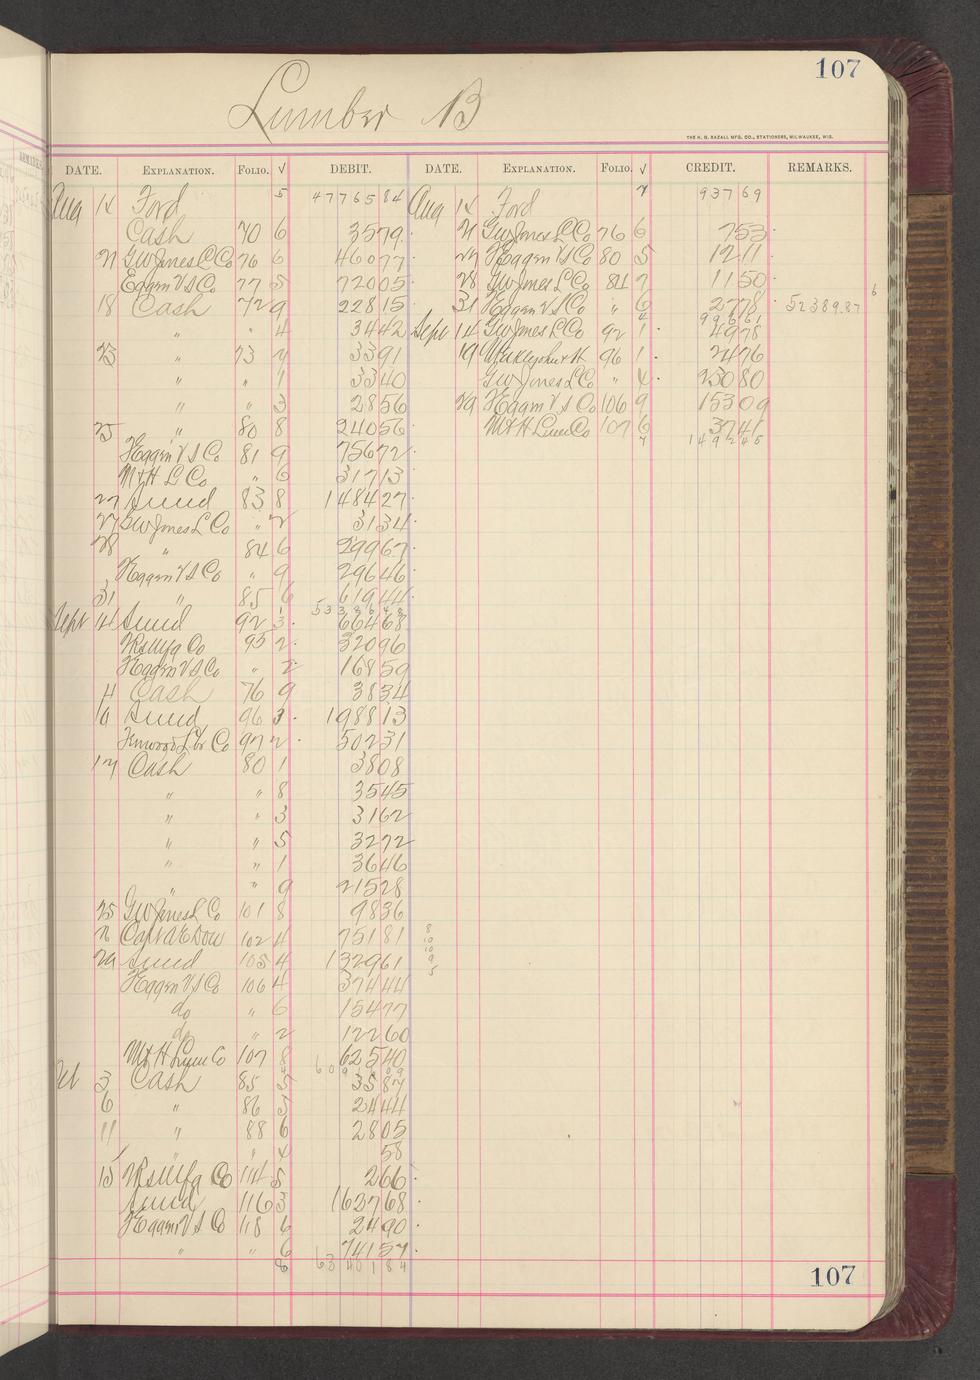 107
Lumber B
THE H. G. RAZALL MFG. CO., STATIONERS, MILWAUKEE, WIS.
DATE. EXPLANATION. FOLIO. √ DEBIT. DATE. EXPLANATION. FOLIO. √ CREDIT. REMARKS.
Aug 14 Ford 5 4776584 Aug 14 Ford 7 93769
Cash 70 6 3579 21 GW Jones L Co 76 6 753
21 GW Jones L Co 76 6 46077 27 H Eggers V S Co 80 5 1211
Eggers V S Co 77 5 72005 28 GW Jones L Co 84 7 1150
18 Cash 72 9 22815 31 H Eggers V S Co " 6 2778 52389.87 6
4 99661
" " 4 3442 Sept 14 GW Jones L Co 92 1 4978
23 " 73 7 3391 19 96 1 2476
" " 1 3340 GW Jones L Co " 4 23080
" " 3 2856 29 H Eggers V S Co 106 9 15309
25 " 80 8 24056 M & H Lum Co 107 6 3741
7 149245
H Eggers V S Co 81 9 75672
M & H L Co " 6 31713
27 Sund 83 8 148427
27 GW Jones L Co " 2 3134
28 " 84 6 29967
H Eggers V S Co " 9 29646
31 " 85 6 61944
1 5338648
Sept 14 Sund 92 3 66468
Mfg Co 95 2 32096
H Eggers V S Co " 2 16859
4 Cash 76 9 3834
16 Sund 96 3 198813
Lbr Co 97 2 50231
17 Cash 80 1 3808
" " 8 3545
" " 3 3162
" " 5 3272
" " 1 3646
" " 9 21528
25 GW Jones L Co 101 8 9836
26 Capt A E Dow 102 4 75181 8
10
10
29 Sund 105 4 132961 9
5
H Eggers V S Co 106 4 37444
do " 6 15477
do " 2 12260
M & H Lum Co 107 8 62540
Oct 3 Cash 85 5 3587
6 " 86 5 2444
11 " 88 6 2805
" " 4 58
15 Mfg Co 114 5 266
Sund 116 3 162768
H Eggers V S Co 118 6 2490
" " 6 74157
8 6340184
107